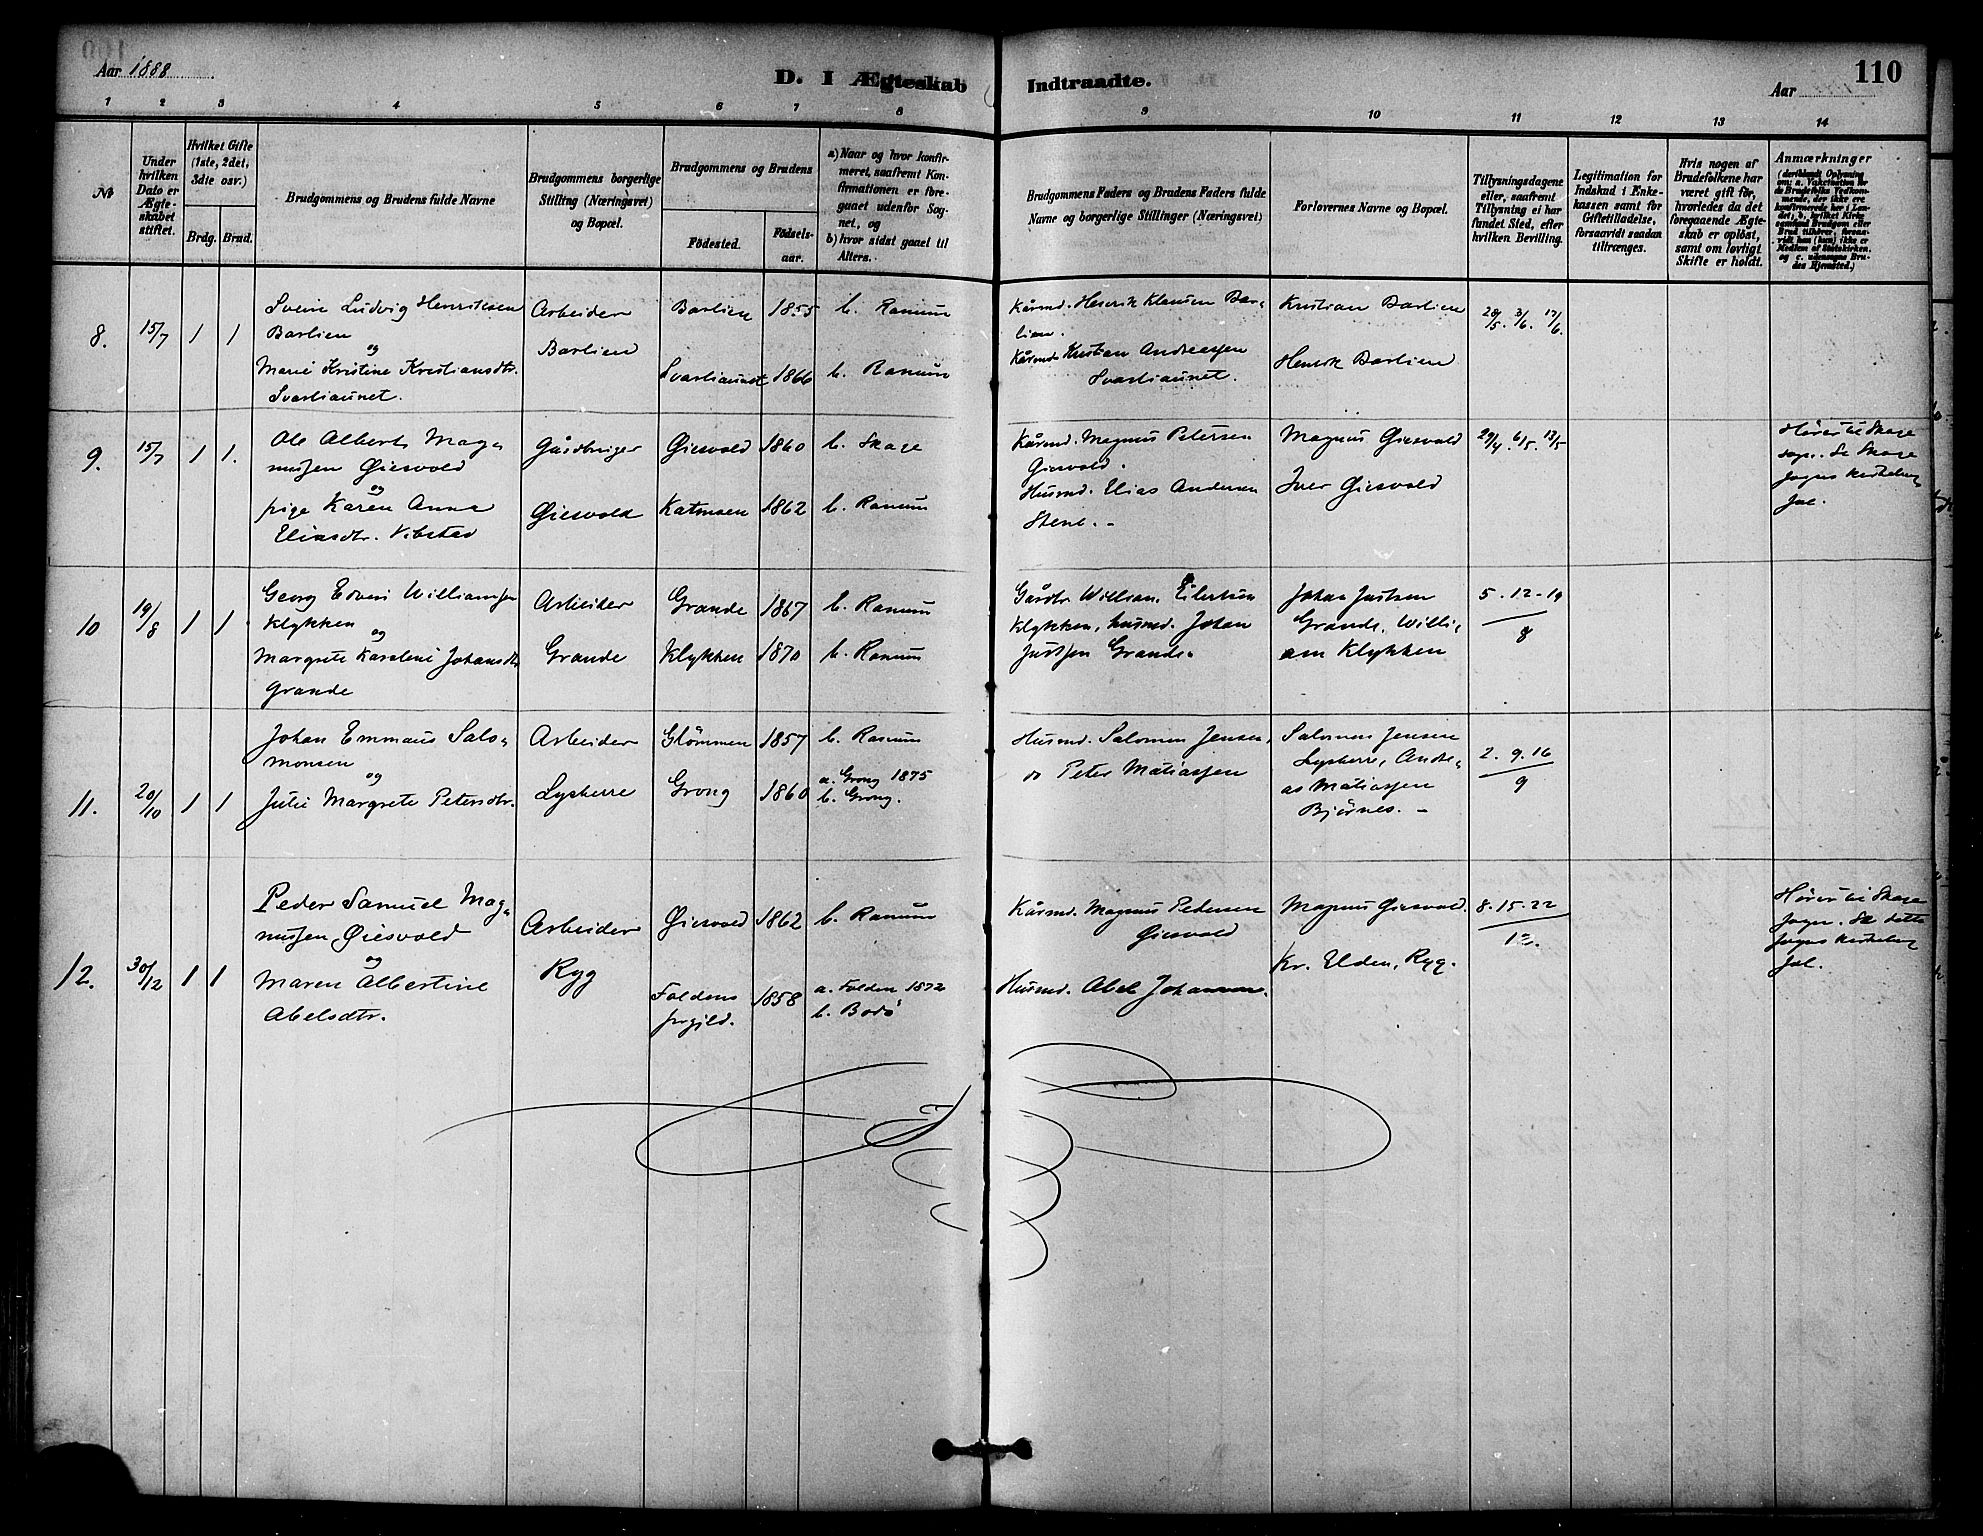 Aar 1888
D. I Ægteskab Indtraadte.
Aar
110
1 2 3 4 5 6 7 8 9 10 11 12 13 14
No
Under hvilken Dato er Ægteskabet stiftet.
Hvilket Gifte (1ste, 2det, 3die osv.)
Brdg. Brud.
Brudgommens og Brudens fulde Navne
Brudgommens borgerlige Stilling (Næringsvei) og Bopæl.
Brudgommens og Brudens
Fødested.
Fødselsaar.
a) Naar og hvor konfirmeret, saafremt Konfirmationen er foregaaet udenfor Sognet, og
b) hvor sidst gaaet til Alters.
Brudgommens Faders og Brudens Faders fulde Navne og borgerlige Stillinger (Næringsvei)
Forlovernes Navne og Bopæl.
Tillysningsdagene eller, saafremt Tillysning ei har fundet Sted, efter hvilken Bevilling.
Legitimation for Indskud i Enkekassen samt for Giftetilladelse, forsaavidt saadan tiltrænges.
Hvis nogen af Brudefolkene har været gift før, hvorledes da det foregaaende Ægteskab er opløst, samt om lovligt Skifte er holdt.
Anmærkninger
(deriblandt Oplysning om: a. Vaksination for de Brudefolks Vedkommende, der ikke ere konfirmerede her i Landet; b. hvilket Kirkesamfund Brudgom eller Brud tilhører, forsaavidt han (hun) ikke er Medlem af Statskirken. og c. udensogns Brudes Hjemsted.)
8. 15/7 1 1
Ludvig Henriksen
Barlien
og
Marie Kristine Kristiansdtr.
Svarliaunet.
Arbeider
Barlien
Barlien 1855 b. Ranum
Svarliaunet 1866 b. Ranum
Kårmd. Henrik Klausen Bar-
lien.
Kårmd. Kristian Andreassen
Svarliaunet.
Kristian Barlien
Henrik Barlien
28/5. 3/6. 17/6.
9. 15/7 1 1.
Ole Albert Mag-
nussen Øiesvold
og
pige Karen Anna
Eliasdtr. Vibstad
Gårdbruger
Øiesvold
Øiesvold 1860 b. Skage
Katmoen 1862 b. Ranum
Kårmd. Magnus Petersen
Øiesvold.
Husmd. Elias Andersen
Stene. -
Magnus Øiesvold
Iver Øiesvold
29/4 6/5. 13/5
Hører til Skage
sogn. Se Skage
sogns kirkebog
10 19/8 1 1
Georg Edvin Williamsen
Klykken
og
Margrete Karoline Johansdtr.
Grande
Arbeider
Grande
Grande 1867 b. Ranum
Klykken 1870 b. Ranum
Gårdbr. William Eilertsen
Klykken, husmd. Johan
Justsen Grande.
Johan Justsen
Grande, Willi-
am Klykken
5. 12 - 19
8
11. 20/10 1 1
Johan Emmaus Salo-
monsen
og
Julie Margrete Petersdtr.
Arbeider
Lysberre
Glömmen 1857 b. Ranum
Grong 1860 a. Grong 1875
b. Grong.
Husmd. Salomon Jensen,
do Peter Matiassen
Salomon Jensen
Lysberre, Andre-
as Matiassen
Bjørnes. -
2. 9. 16
9
12. 30/12 1 1
Peder Samuel Mag-
nussen Øiesvold
og
Maren Albertine
Abelsdtr.
Arbeider
Ryg
Øiesvold 1862 b. Ranum
Foldens
prgjld. 1858 a. Folden 1872
b. Bodø
Kårmd. Magnus Petersen
Øiesvold
Husmd. Abel Johannsen.
Magnus Øiesvold.
Kr. Elden, Ryg.
8. 15. 22
12.
Hører til Skage
sogn. Se dette
sogns kirkebog